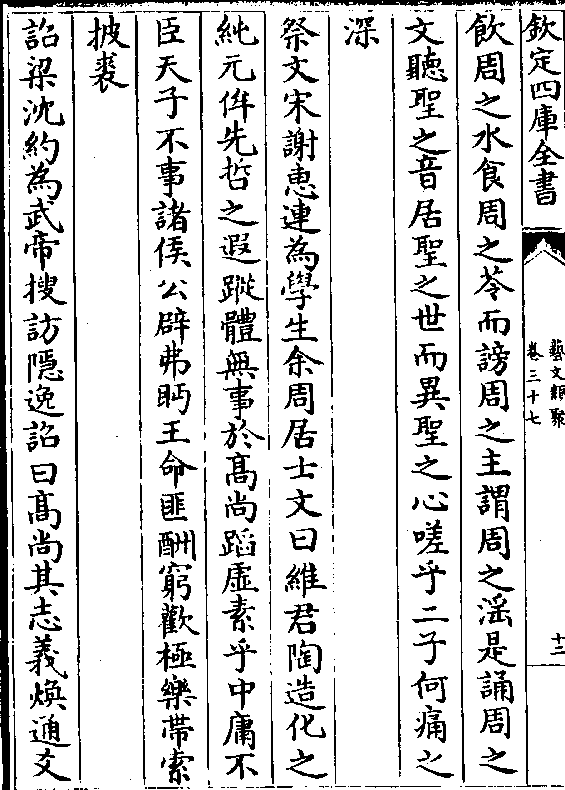 欽定四庫全書
藝文類聚
卷三十七
十二
飲周之水食周之苓而謗周之主謂周之滛是誦周之
文聽聖之音居聖之世而異聖之心嗟乎二子何痛之
深
祭文宋謝惠連為學生余周居士文曰維君陶造化之
純元侔先哲之遐蹤體無事於髙尚蹈虛素乎中庸不
臣天子不事諸侯公辟弗眄王命匪酬窮歡極樂帶索
披裘
詔梁沈約為武帝搜訪隱逸詔曰髙尚其志義煥通爻